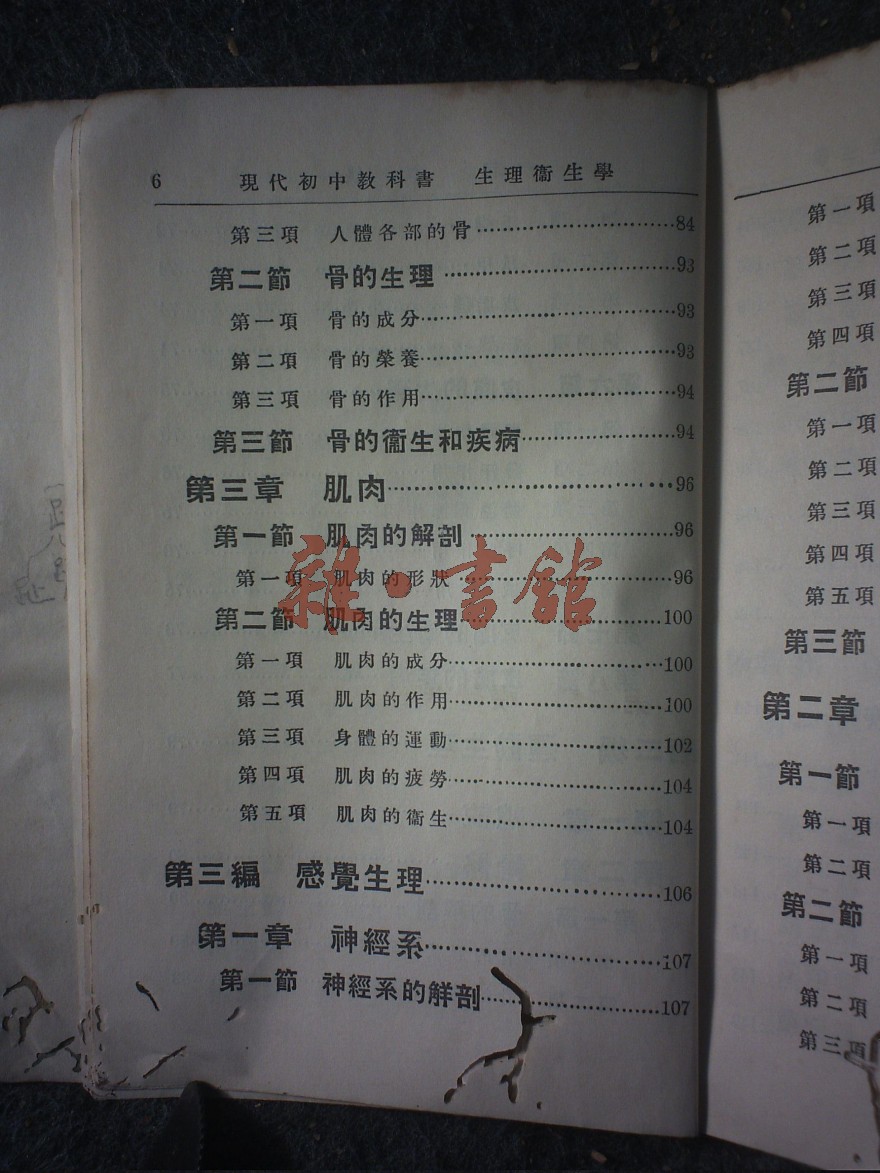 6 現代初中教科書 生理衞生學
第三項 人體各部的骨……84
第二節 骨的生理……93
第一項 骨的成分……93
第二項 骨的榮養……93
第三項 骨的作用……94
第三節 骨的衞生和疾病……94
第三章 肌肉……96
第一節 肌肉的解剖……96
第一項 肌肉的形狀……96
雜·書館
第二節 肌肉的生理……100
第一項 肌肉的成分……100
第二項 肌肉的作用……100
第三項 身體的運動……102
第四項 肌肉的疲勞……104
第五項 肌肉的衞生……104
第三編 感覺生理……106
第一章 神經系……107
第一節 神經系的解剖……107
第一項
第二項
第三項
第四項
第二節
第一項
第二項
第三項
第四項
第五項
第三節
第二章
第一節
第一項
第二項
第二節
第一項
第二項
第三項